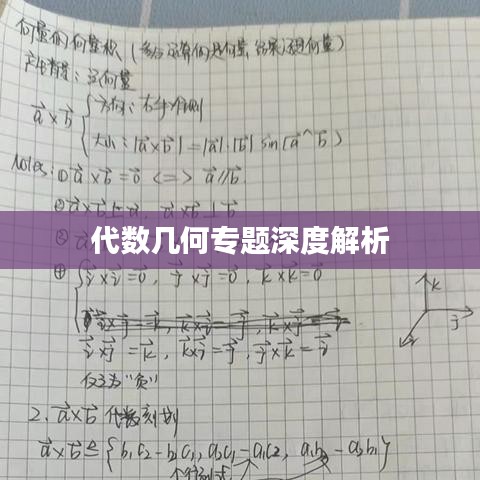 向量的向量积（参与运算的是向量，结果还是向量）
产生背景：立向量
a⃗×b⃗ { 方向：右手准则
大小：|a⃗×b⃗|=|a⃗|·|b⃗| sin(a⃗^b⃗)
Notes: ① a⃗×b⃗=0⃗ <=> a⃗//b⃗.
② a⃗×b⃗⊥a⃗, a⃗×b⃗⊥b⃗
代数几何专题深度解析
④ { i⃗×i⃗=0⃗, j⃗×j⃗=0⃗, k⃗×k⃗=0⃗
i⃗×j⃗=k⃗, k⃗×i⃗=j⃗, j⃗×k⃗=i⃗
k
j
i
反之为"负"
2. a⃗×b⃗ 代数刻划
a⃗×b⃗≙{b₁c₂-b₂c₁, a₂c₁-a₁c₂, a₁b₂-a₂b₁}
个行列式